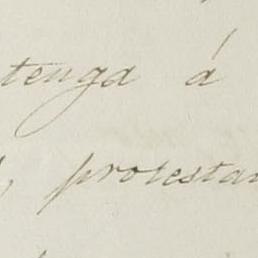 tenga á
, protesta